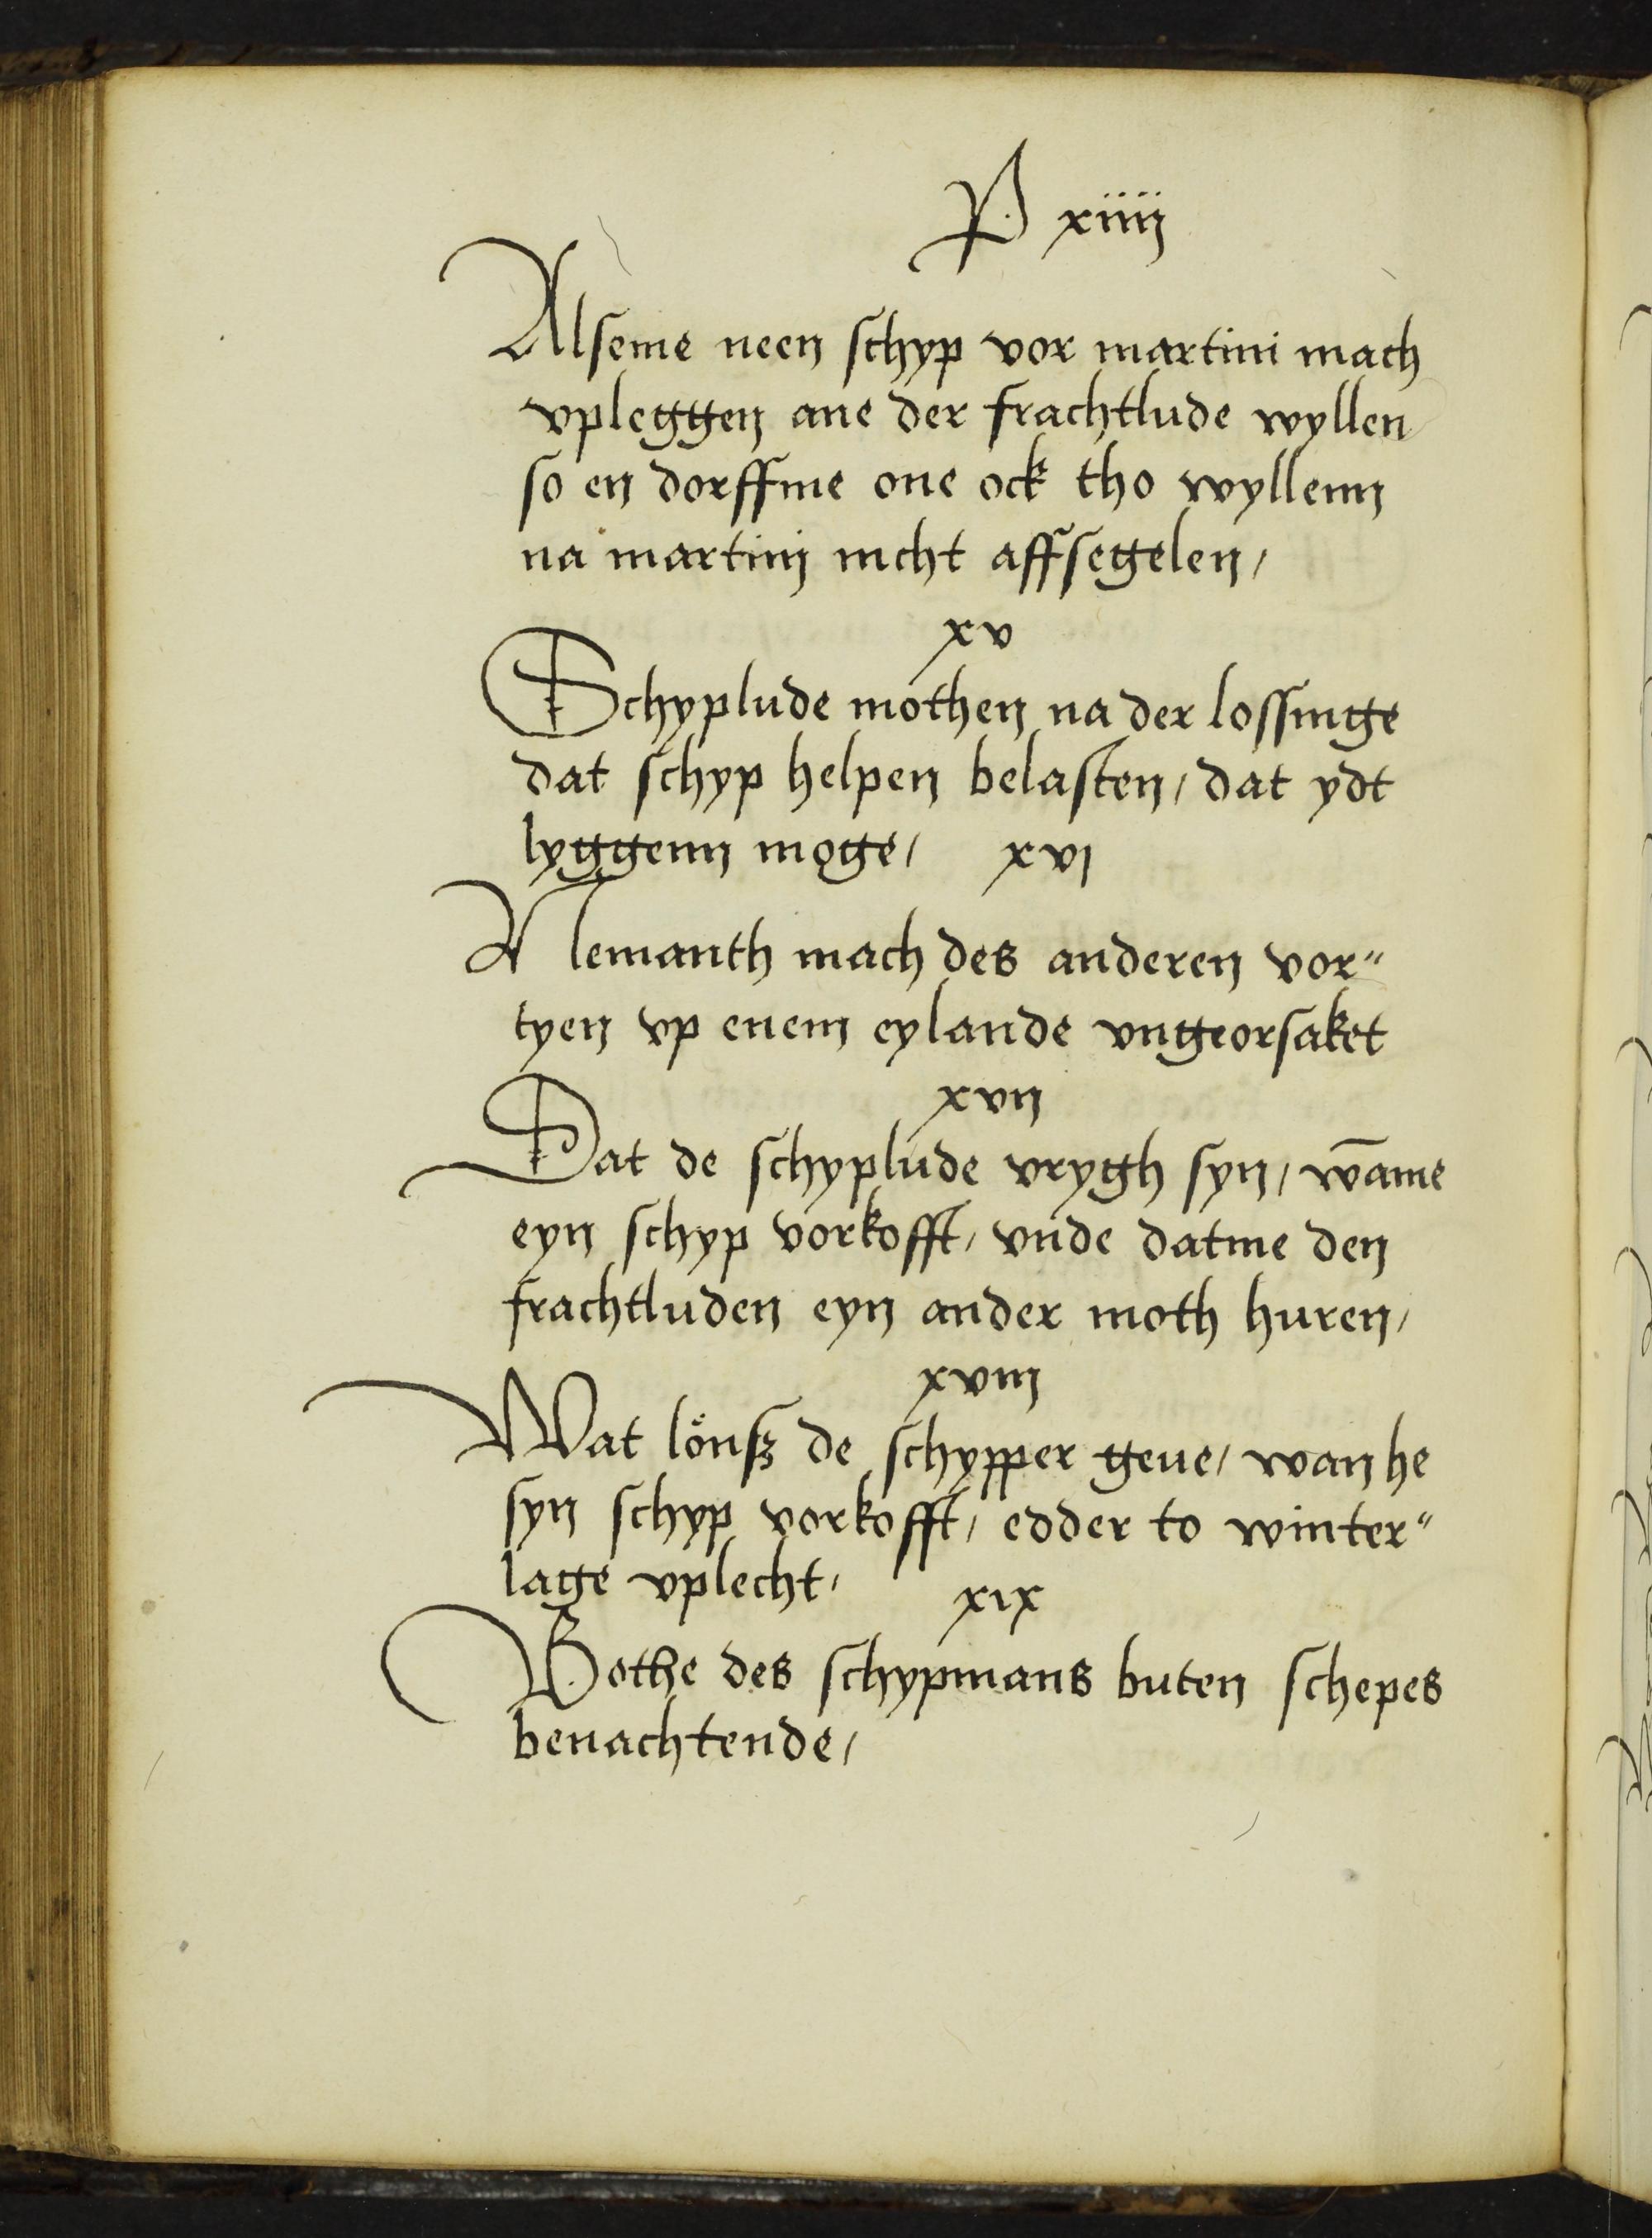 P xiiij
Alseme neen schyp vor martini mach
vpleggen ane der frachtlude wyllen
so en dorffme one ock tho wyllenn
na martinj nicht affsegelen,
xv
Schyplude mothen na der lossinge
dat schyp helpen belasten, dat ydt
lyggenn moge, xvj
Nemanth mach des anderen vor"
tyen vp enem eylande vngeorsaket
xvij
Dat de schyplude vrygh syn, wāme
eyn schyp vorkofft, vnde datme den
frachtluden eyn ander moth huren,
xviij
Wat lönsz de schypper geue, wan he
syn schyp vorkofft, edder to winter"
lage vplecht, xix
Bothe des schypmans buten schepes
benachtende,